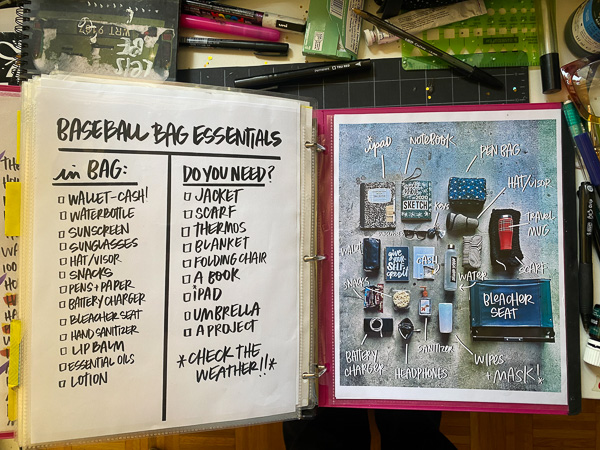 BASEBALL BAG ESSENTIALS
in BAG:
WALLET-CASH!
WATERBOTTLE
SUNSCREEN
SUNGLASSES
HAT/VISOR
SNACKS
PENS + PAPER
BATTERY CHARGER
BLEACHER SEAT
HAND SANITIZER
LIP BALM
ESSENTIAL OILS
LOTION
DO YOU NEED?
JACKET
SCARF
THERMOS
BLANKET
FOLDING CHAIR
A BOOK
iPAD
UMBRELLA
A PROJECT
*CHECK THE
WEATHER!!*
ipad
NOTEBOOK
PEN BAG
HAT/VISOR
SKETCH
KEYS
TRAVEL
MUG
WALLET
CASH
WATER
SCARF
SNACKS
BLEACHER
SEAT
BATTERY
CHARGER
HEADPHONES
SANITIZER
WIPES
+ MASK!